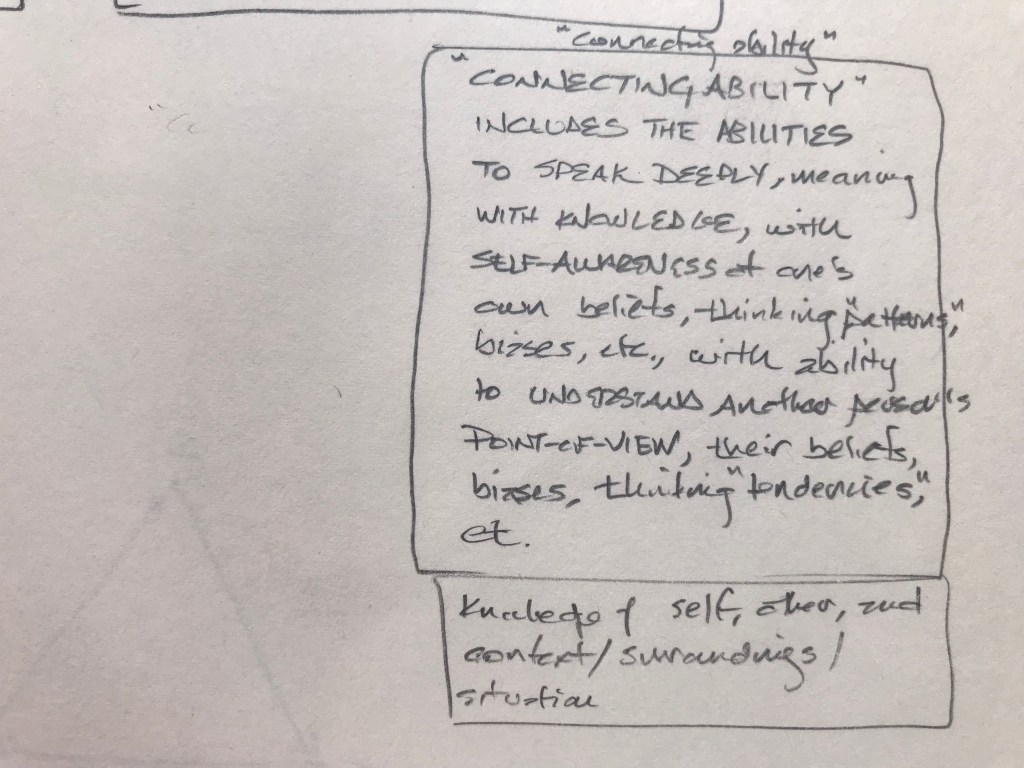 "connecting ability"
"CONNECTING ABILITY"
INCLUDES THE ABILITIES
TO SPEAK DEEPLY, meaning
WITH KNOWLEDGE, with
SELF-AWARENESS of one's
own beliefs, thinking "patterns,"
biases, etc., with ability
to UNDERSTAND Another person's
POINT-OF-VIEW, their beliefs,
biases, thinking "tendencies,"
et.
Knowledge of self, other, and
context/surroundings/
situation